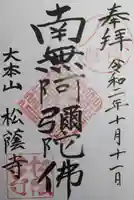 奉拝
令和二年十月十一日
南無阿彌陀佛
大本山 松蔭寺